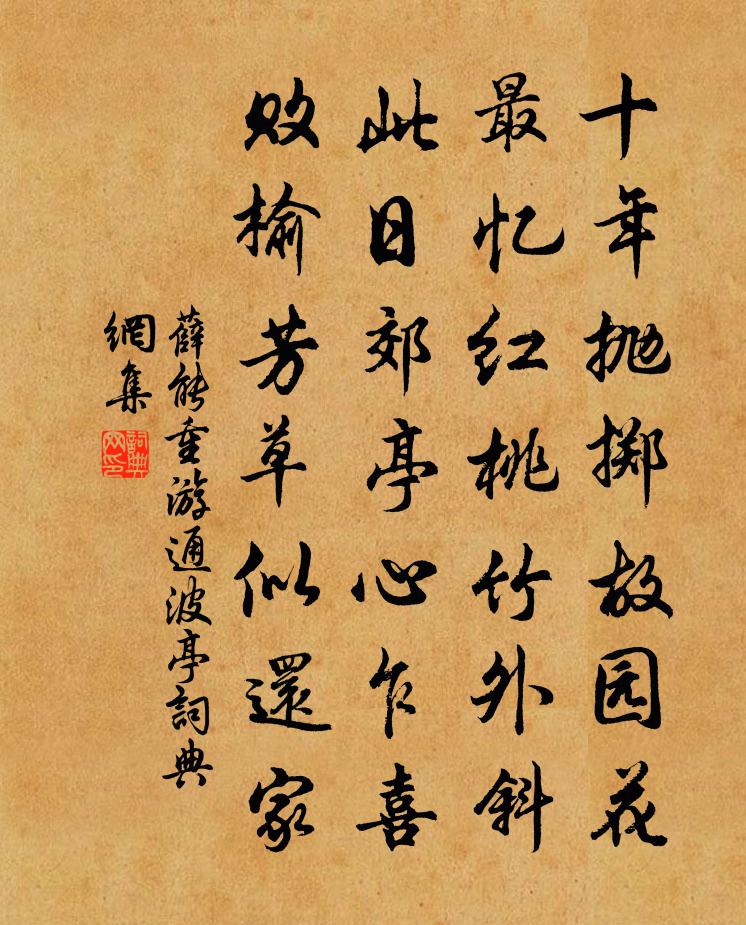 十年抛掷故园花
最忆红桃竹外斜
此日郊亭心乍喜
败榆芳草似還家
薛能重游通波亭詞典
網集
詞典
网印